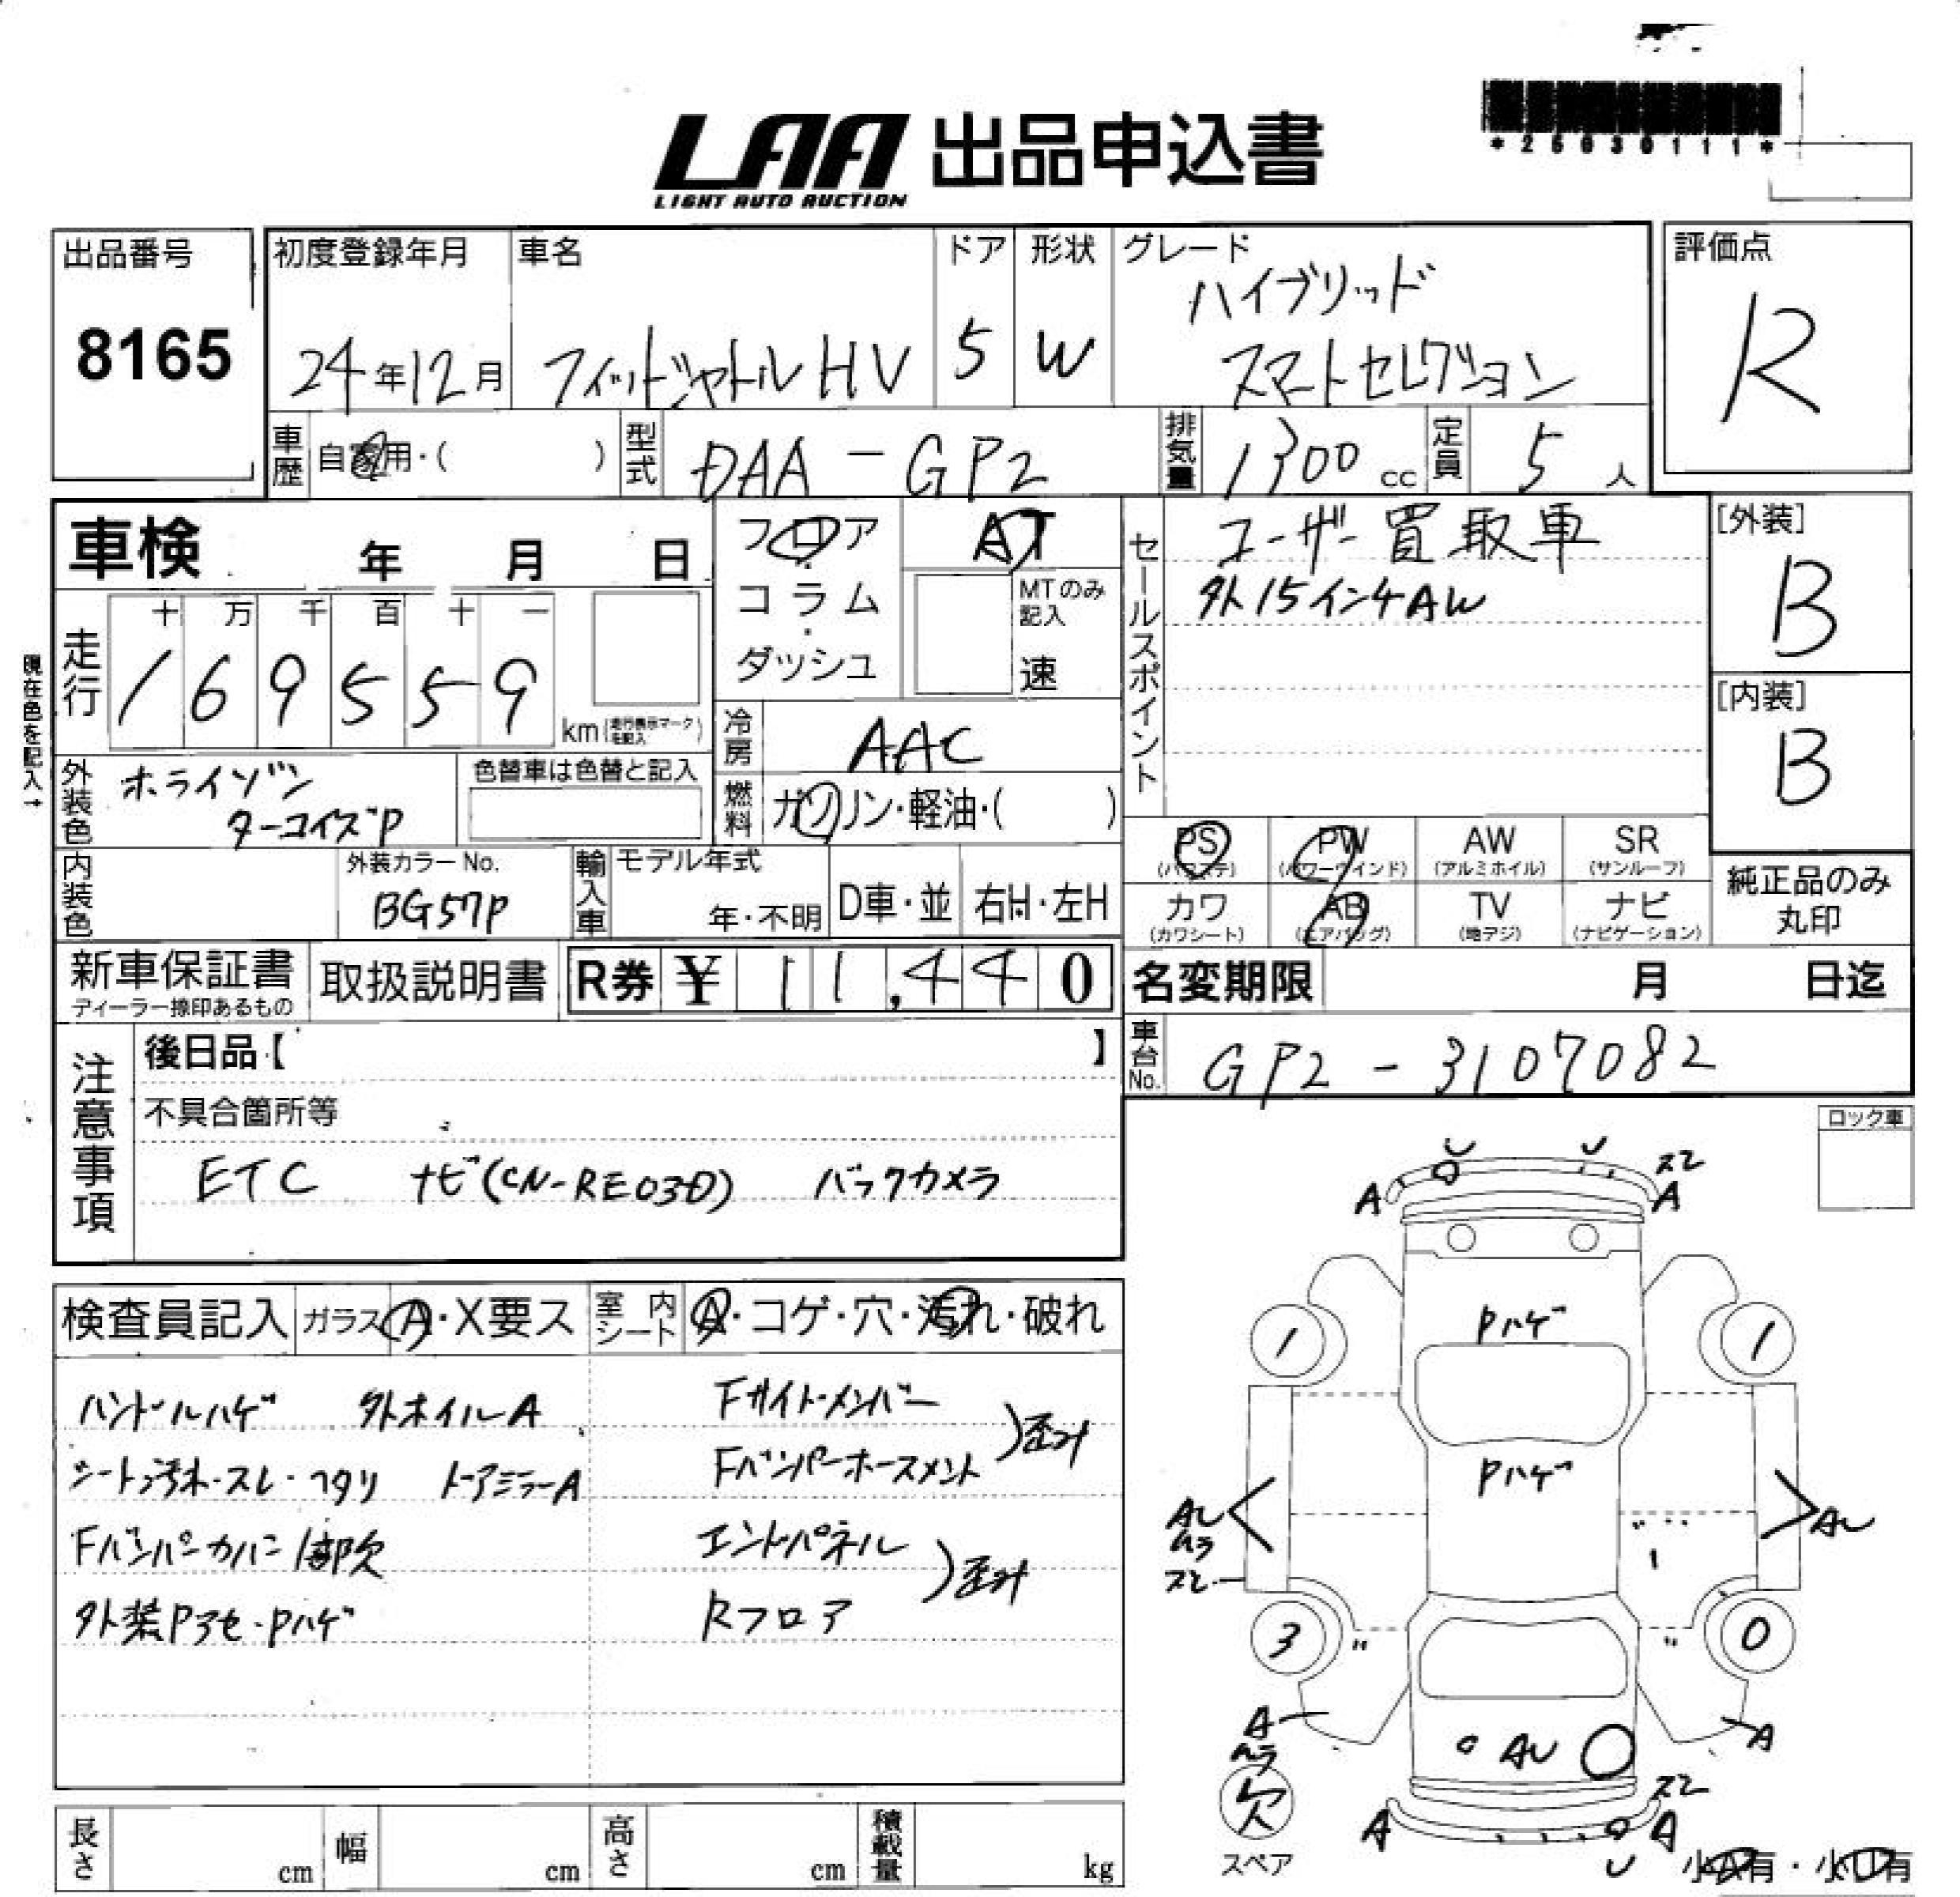 LAA 出品申込書
LIGHT AUTO AUCTION
*25030111*
出品番号
8165
初度登録年月
24年12月
車名
フィットシャトルHV
ドア
5
形状
W
グレード
ハイブリッド
スマートセレクション
評価点
R
車歴 自家用・( )
型式 DAA-GP2
排気量 1300cc
定員 5人
車検 年 月 日
フロア
・
コラム
・
ダッシュ
AT
MTのみ
記入
速
セールスポイント
ユーザー買取車
外15インチAW
[外装]
B
[内装]
B
現在色を記入→
走行
十 万 千 百 十 一
1 6 9 5 5 9
km(走行表示マークを記入)
冷房 AAC
燃料 ガソリン・軽油・( )
外装色
ホライゾン
ターコイズP
色替車は色替と記入
内装色
外装カラーNo.
BG57P
輸入車
モデル年式
年・不明
D車・並
右H・左H
PS
(パワステ)
PW
(パワーウインド)
AW
(アルミホイル)
SR
(サンルーフ)
カワ
(カワシート)
AB
(エアバッグ)
TV
(地デジ)
ナビ
(ナビゲーション)
純正品のみ
丸印
新車保証書
ディーラー捺印あるもの
取扱説明書
R券 ¥ 11,440
名変期限 月 日迄
車台No. GP2-3107082
注意事項
後日品【 】
不具合箇所等
ETC ナビ(CN-RE03D) バックカメラ
ロック車
検査員記入
ガラス A・X要ス
室内シート A・コゲ・穴・汚れ・破れ
ハンドルハゲ 外ホイルA
シート汚れ・スレ・ヘタリ ドアミラーA
Fバンパーカバー1部欠
外装Pヤセ・Pハゲ
Fサイドメンバー
Fバンパーホースメント
)歪み
エンドパネル
Rフロア
)歪み
長さ cm
幅 cm
高さ cm
積載量 kg
U U
A A
スレ
Pハゲ
1 1
Pハゲ
AU
ムラ
スレ
AU
3 0
A
ムラ
A
AU
欠
スペア
スレ
A A
U
小A有・小U有